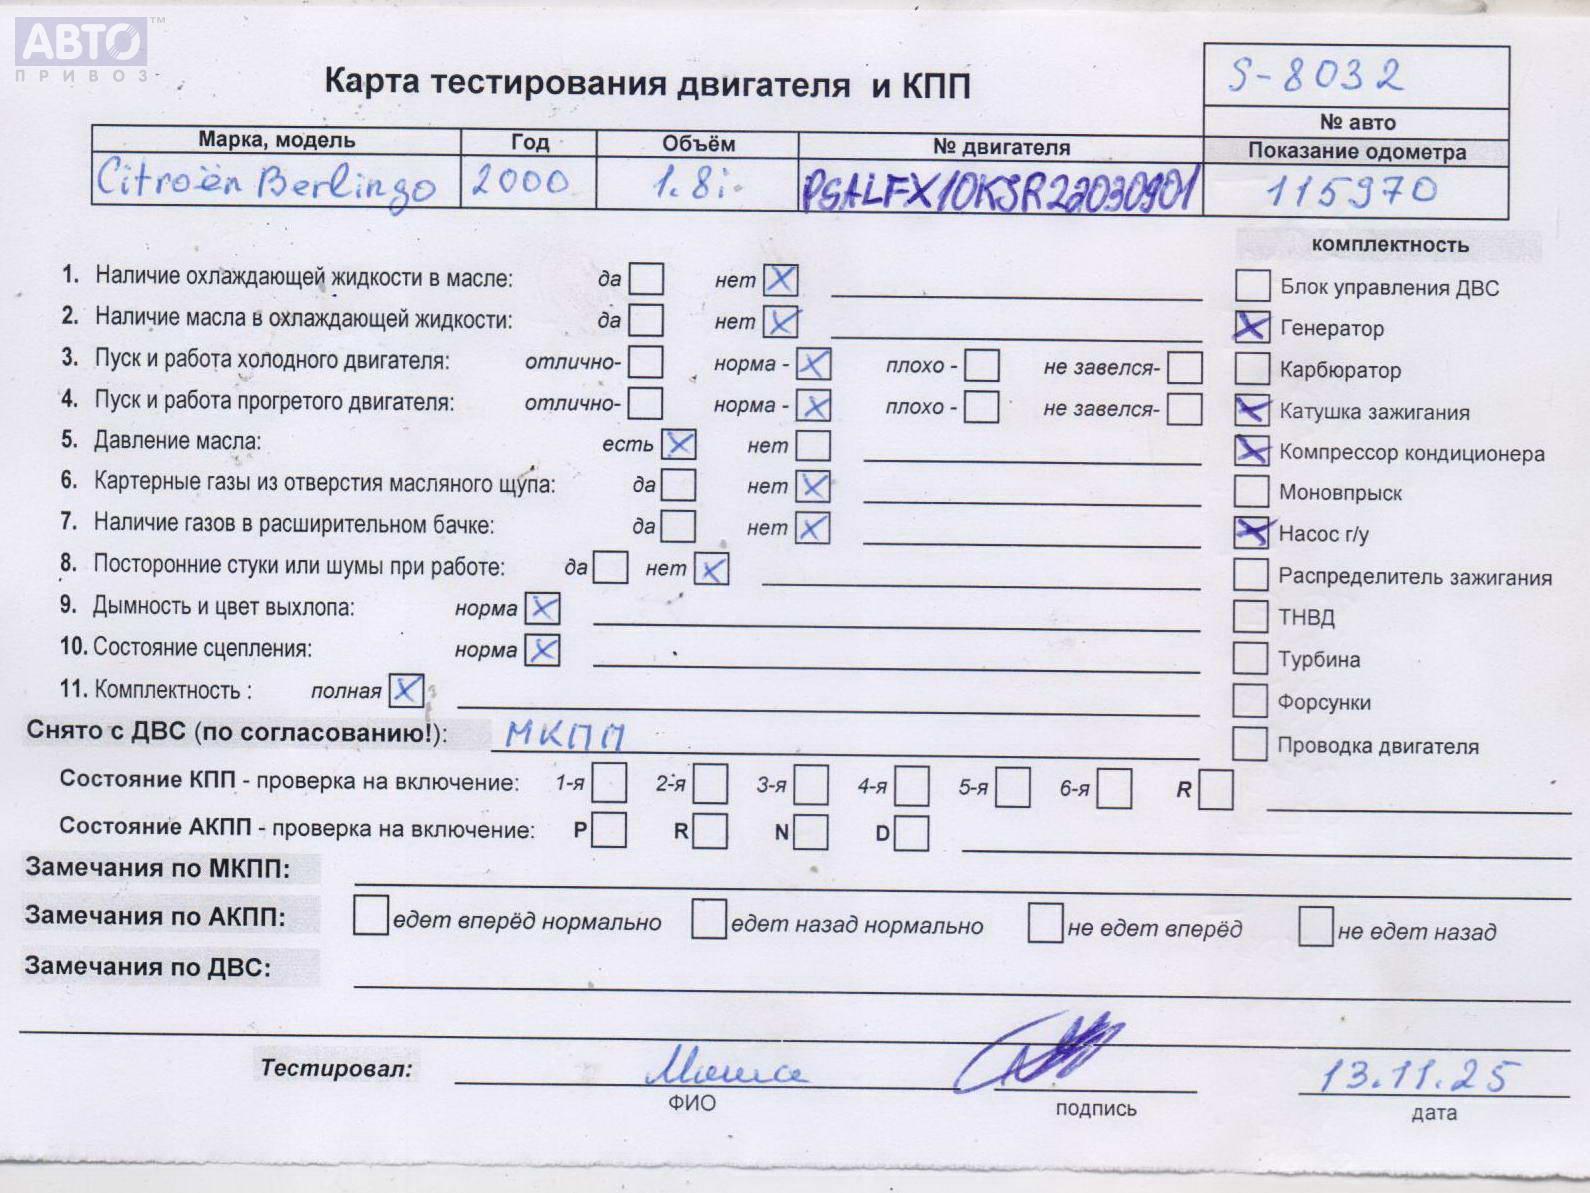 АВТО™
ПРИВОЗ
Карта тестирования двигателя и КПП
S-8032
№ авто
Марка, модель Год Объём № двигателя Показание одометра
Citroën Berlingo 2000 1.8i PSALFX10KSR22030901 115970
комплектность
1. Наличие охлаждающей жидкости в масле: да нет X
2. Наличие масла в охлаждающей жидкости: да нет X
3. Пуск и работа холодного двигателя: отлично- норма - X плохо - не завелся-
4. Пуск и работа прогретого двигателя: отлично- норма - X плохо - не завелся-
5. Давление масла: есть X нет
6. Картерные газы из отверстия масляного щупа: да нет X
7. Наличие газов в расширительном бачке: да нет X
8. Посторонние стуки или шумы при работе: да нет X
9. Дымность и цвет выхлопа: норма X
10. Состояние сцепления: норма X
11. Комплектность : полная X
Блок управления ДВС
X Генератор
Карбюратор
X Катушка зажигания
X Компрессор кондиционера
Моновпрыск
X Насос г/у
Распределитель зажигания
ТНВД
Турбина
Форсунки
Проводка двигателя
Снято с ДВС (по согласованию!): МКПП
Состояние КПП - проверка на включение: 1-я 2-я 3-я 4-я 5-я 6-я R
Состояние АКПП - проверка на включение: P R N D
Замечания по МКПП:
Замечания по АКПП: едет вперёд нормально едет назад нормально не едет вперёд не едет назад
Замечания по ДВС:
Тестировал: 13.11.25
ФИО подпись дата